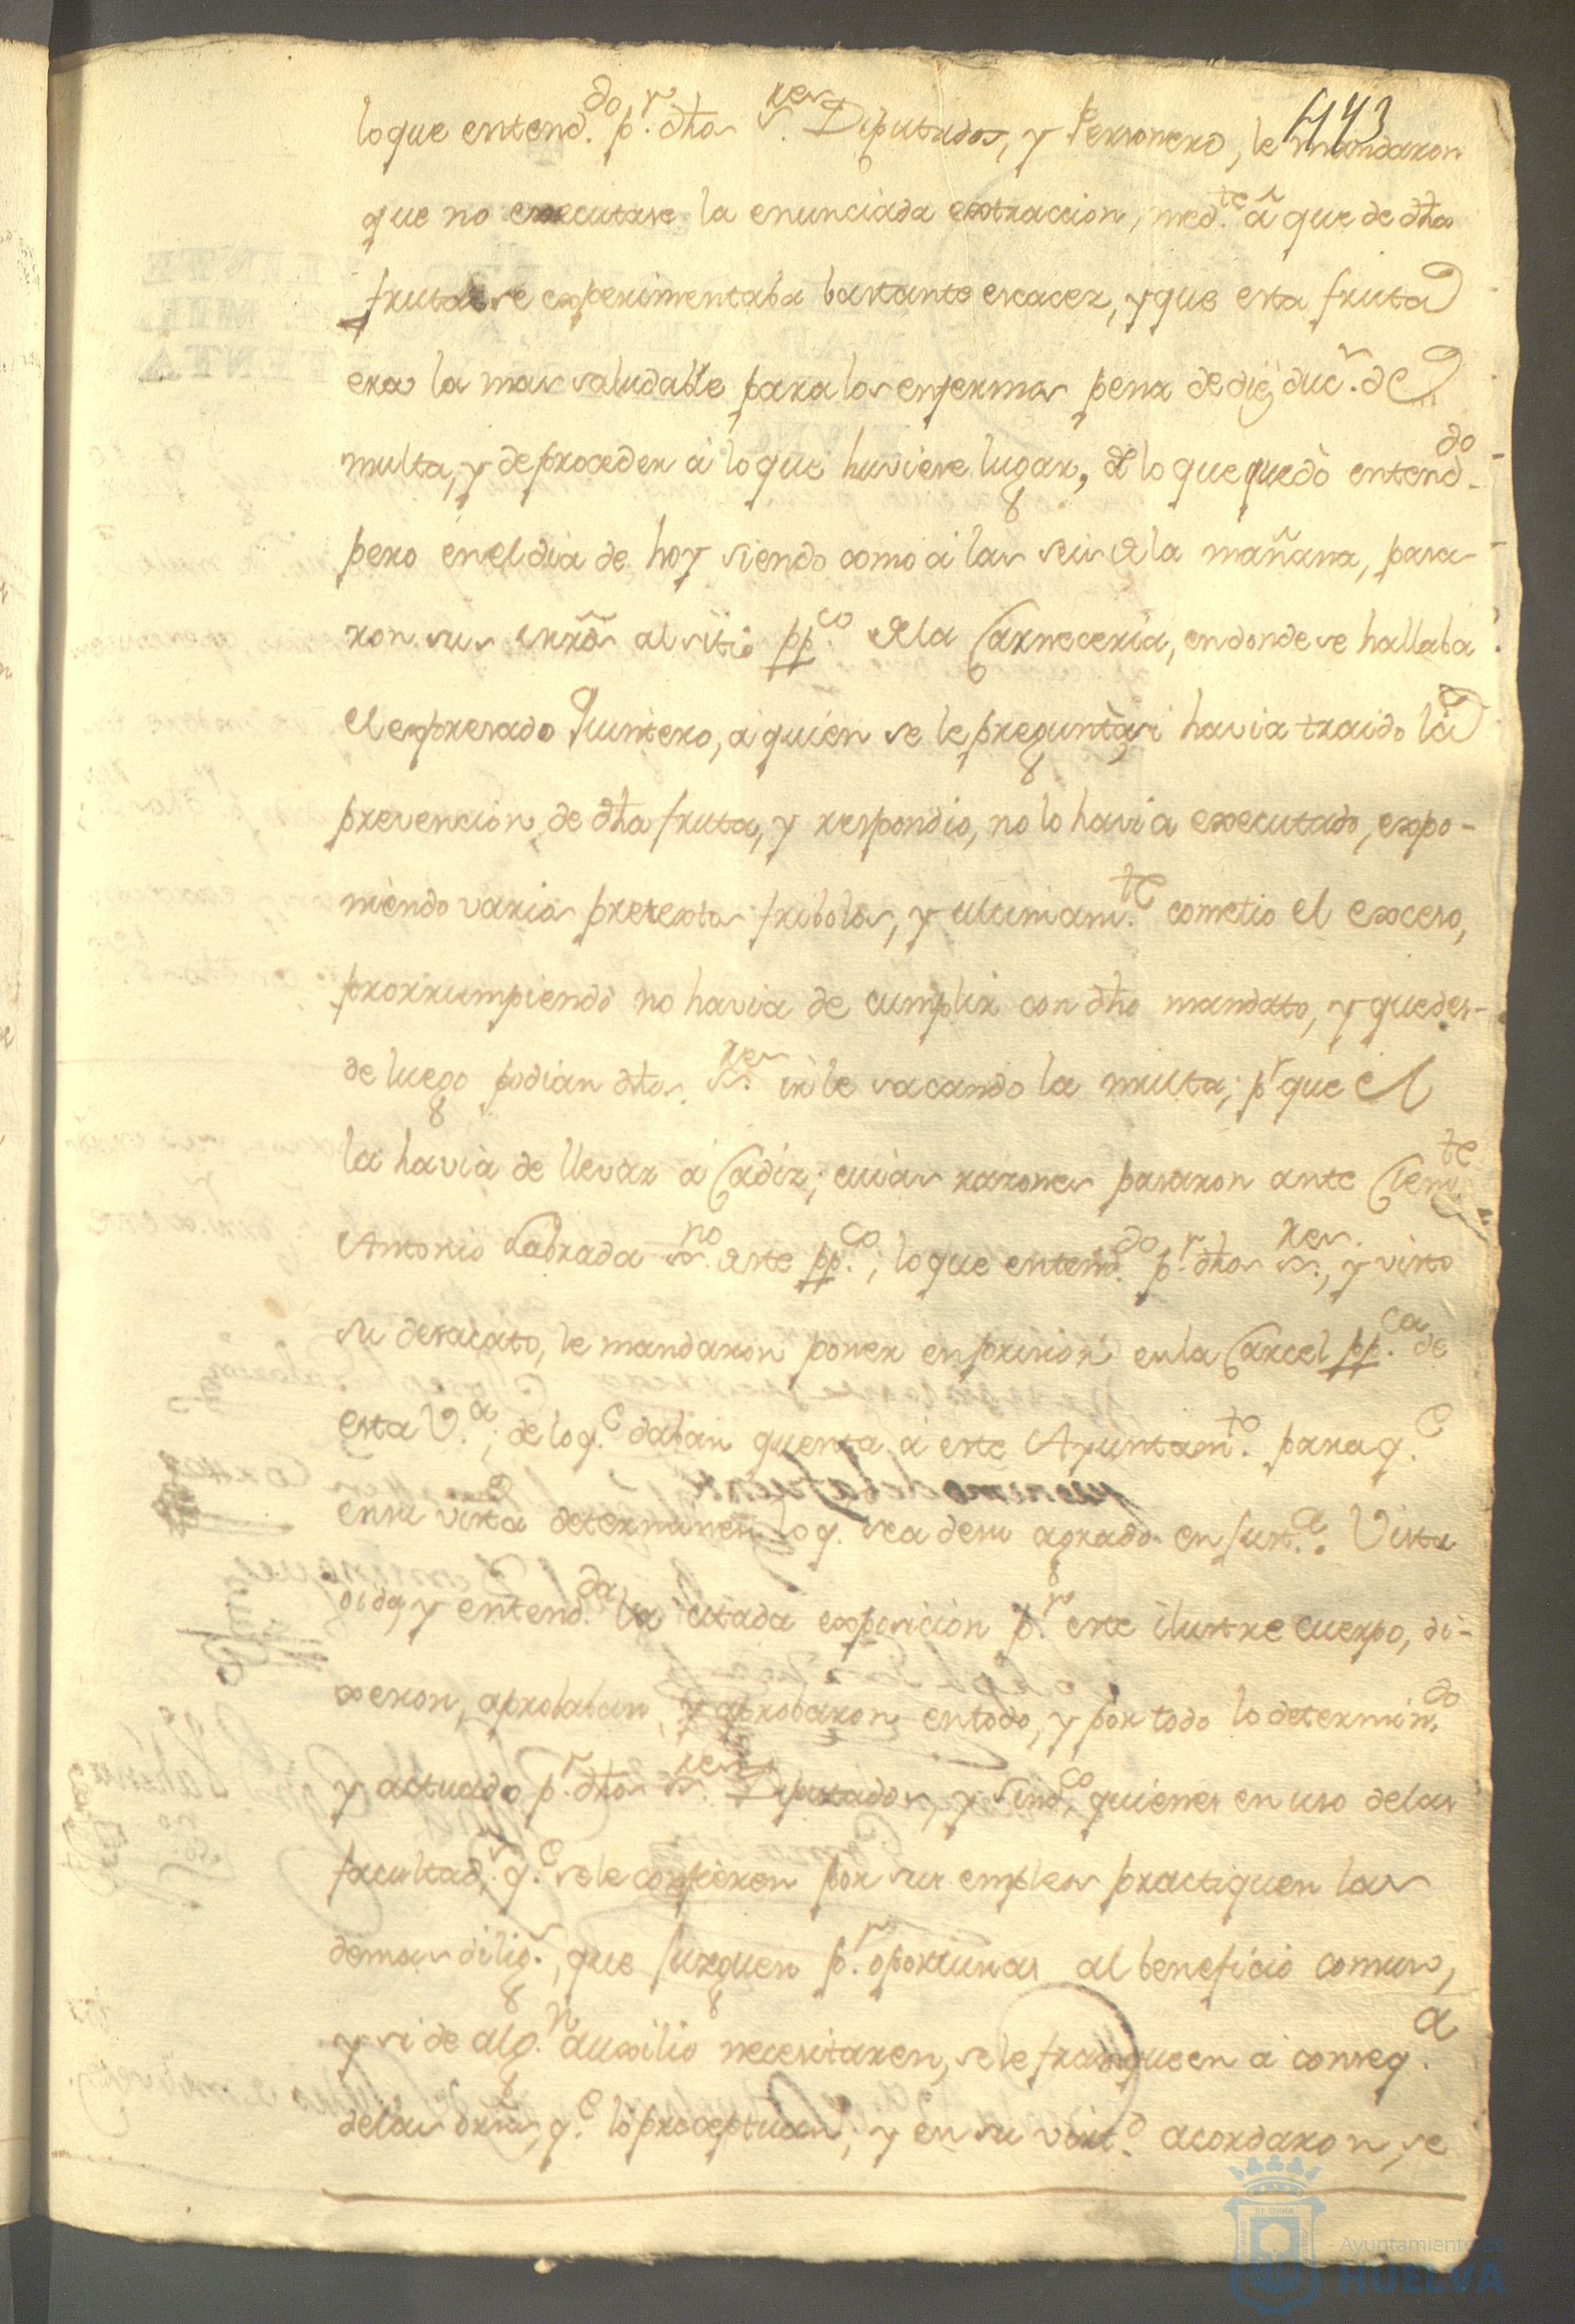 443
lo que entend.do p.r dhos S.res Diputados, y Personero, le mandaron
que no executase la enunciada extraccion, med.te â que de dha
fruta se experimentaba bastante escacez, y que esta fruta
era la mas saludable para los enfermos pena de diez duc.s de
multa, y de proceder â lo que huviere lugar, de lo que quedò entend.do
pero en el dia de hoy siendo como â las seis de la mañana, pasa-
ron sus mrds al sitio pp.co de la Carneceria, en donde se hallaba
el expresado Quintero, a quien se le pregunta si havia traido la
prevencion de dha fruta, y respondio, no lo havia executado, expo-
niendo varios pretextos fribolos, y ultimam.te cometio el exceso,
prorrumpiendo no havia de cumplir con dho mandato, y que des-
de luego podian dhos S.res irle sacando la multa; p.r que el
la havia de llevar â Cadiz; cuias razones pasaron ante Clem.te
Antonio Labrada ss.no deste pp.co; lo que entend.do p.r dhos ss.res, y visto
su desacato, le mandaron poner en prision en la Carcel pp.ca de
esta V.a; de lo q.e daban quenta â este Ayuntam.to para q.e
en su vista determinen lo q. sea de su agrado en just.a. Vista
oida, y entend.da la citada exposicion p.r este ilustre cuerpo, di-
xeron, aprobaban, y aprobaron en todo, y por todo lo determin.do
y actuado p.r dhos ss.res Diputados, y Sind.co, quienes en uso de las
facultad.s q.e se le confieren por sus empleos practiquen las
demas dilig.s, que jusguen p.r oportunas al beneficio comun,
y si de alg.n auxilio necesitaren, se le franqueen â conseq.a
de las orns, q.e lo preceptuan; y en su virt.d acordaron, se
Ayuntamiento de
HUELVA